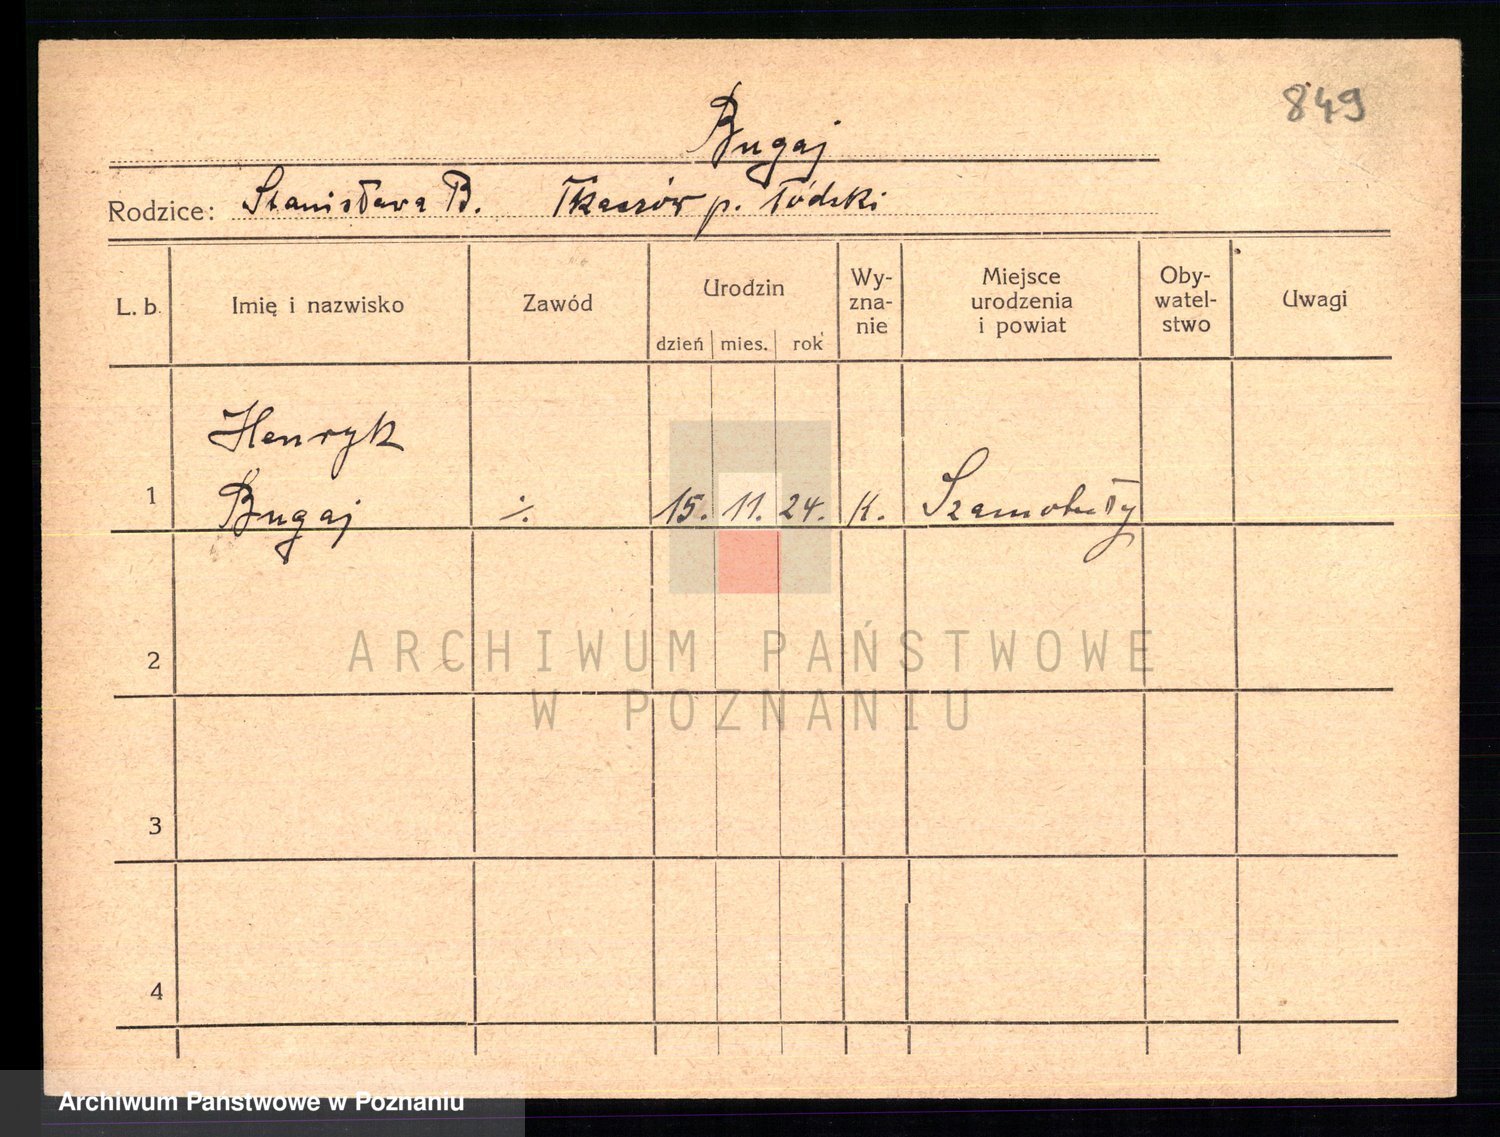 849
Bugaj
Rodzice: Stanisława B. Tkaczów p. Łódzki
L. b. Imię i nazwisko Zawód Urodzin dzień mies. rok Wy-zna-nie Miejsce urodzenia i powiat Oby-watel-stwo Uwagi
Henryk
1 Bugaj ·/. 15. 11. 24. K. Szamotuły
2
ARCHIWUM PAŃSTWOWE
W POZNANIU
3
4
Archiwum Państwowe w Poznaniu